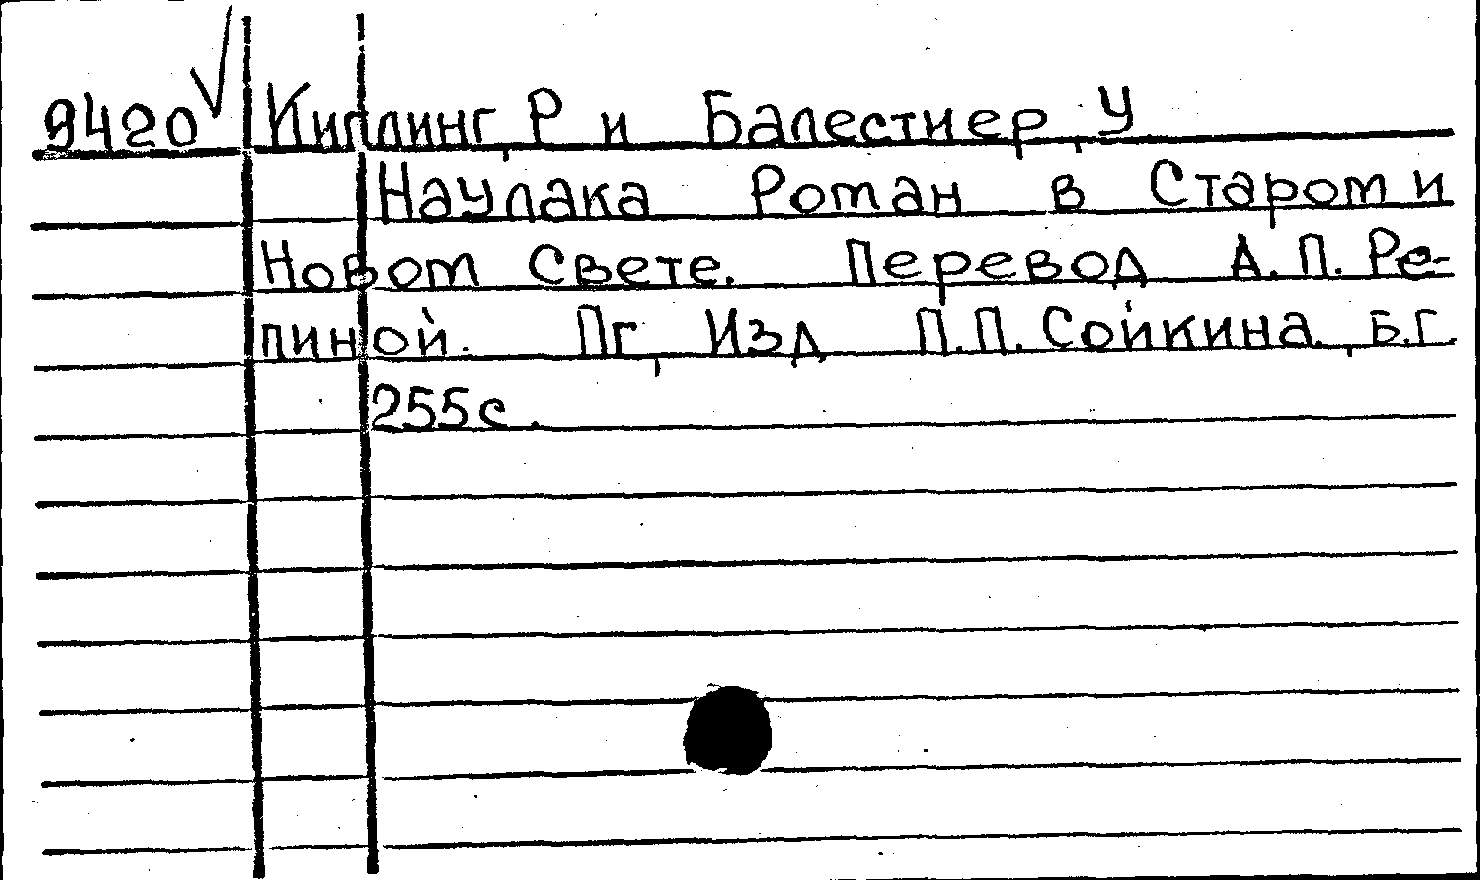 9420 Киплинг, Р и Балестиер, У
Наулака Роман в Старом и
Новом Свете. Перевод А.П. Ре-
пиной. Пг, Изд П.П. Сойкина, Б.г.
255с.